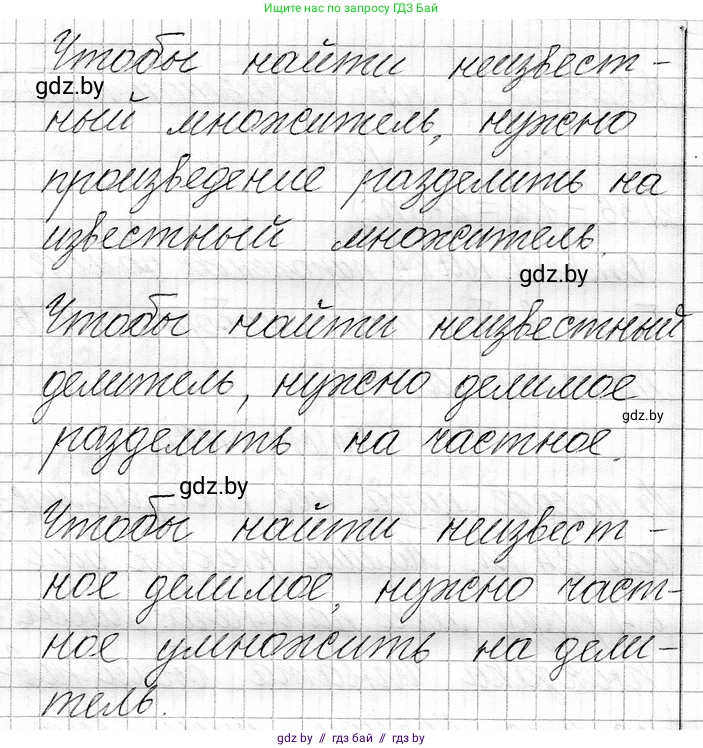 Ищите нас по запросу ГДЗ Бай
Чтобы найти неизвест-
gdz.by
ный множитель, нужно
произведение разделить на
известный множитель.
gdz.by
Чтобы найти неизвестный
делитель, нужно делимое
gdz.by
разделить на частное.
gdz.by
Чтобы найти неизвест-
ное делимое, нужно част-
ное умножить на дели-
тель.
gdz.by // гдз бай // гдз by